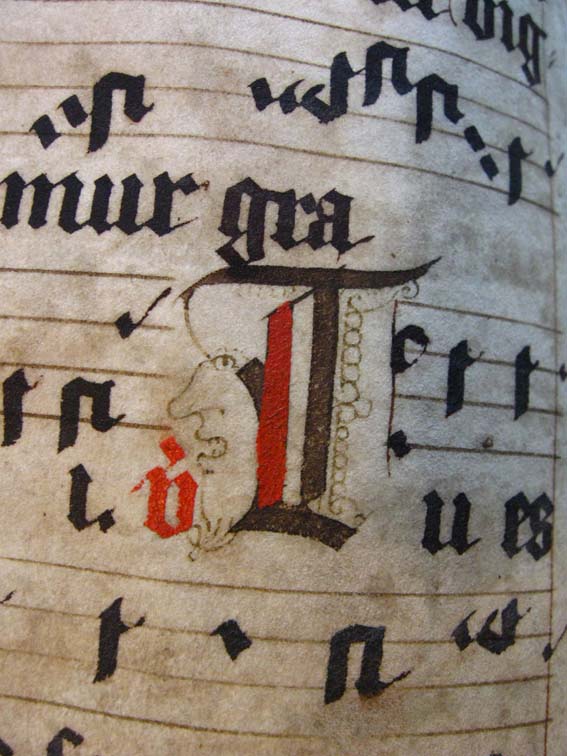 mur gra
l. v̇ Tu es